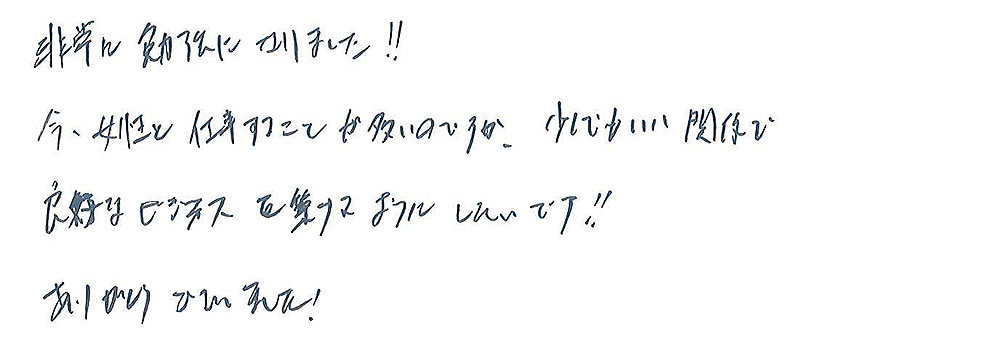 非常に勉強になりました!!
今、女性と仕事することが多いのですが、少しでもいい関係で
良好なビジネスを築けるようにしたいです!!
ありがとうございました!